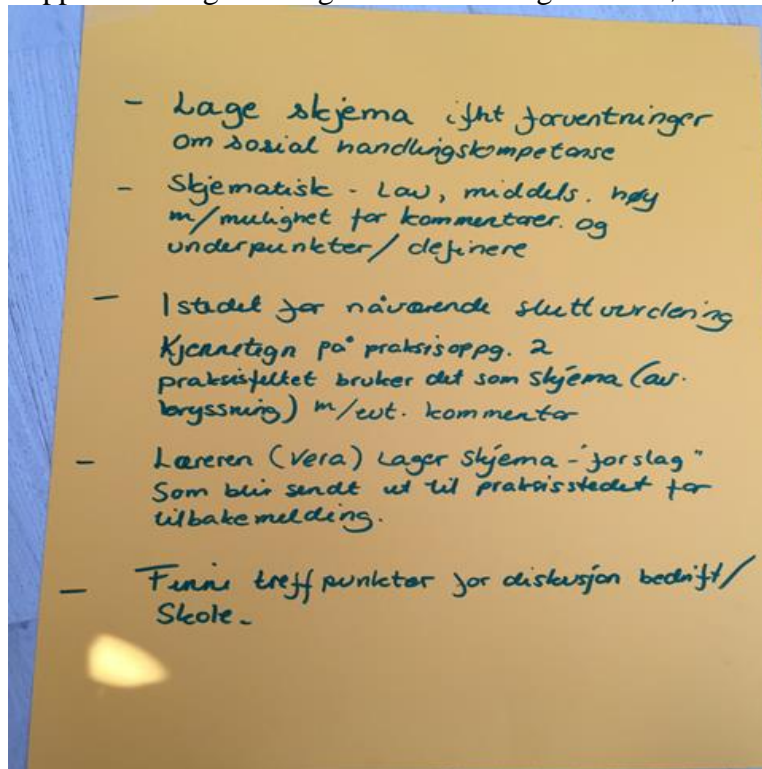 - Lage skjema ifht forventninger
om sosial handlingskompetanse
- Skjematisk - Lav, middels. høy
m/mulighet for kommentarer. og
underpunkter/definere
- Istedet for nåværende sluttvurdering
Kjennetegn på praksisoppg. 2
praksisfeltet bruker det som skjema (av.
kryssning) m/evt. kommentar
- Læreren (Vera) Lager skjema - "forslag"
Som blir sendt ut til praksisstedet for
tilbakemelding.
- Finne treffpunkter for diskusjon bedrift/
Skole.